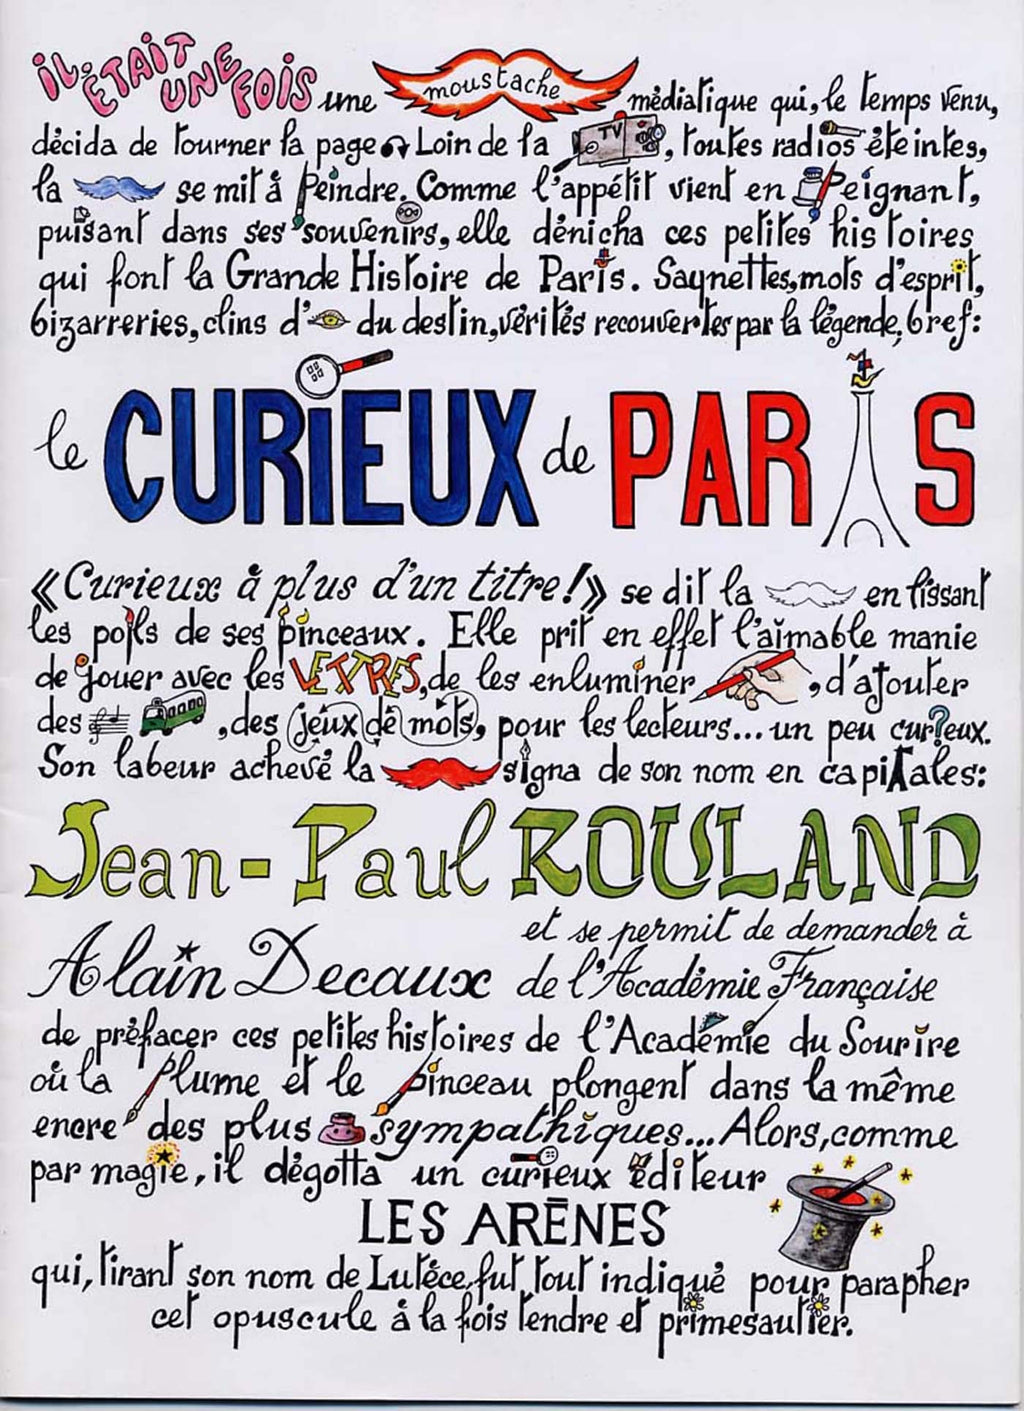 iL ÉTAIT UNE FOIS une moustache médiatique qui, le temps venu,
décida de tourner la page Loin de la TV, toutes radios éteintes,
la se mit à Peindre. Comme l'appétit vient en Peignant,
puisant dans ses souvenirs, elle dénicha ces petites histoires
qui font la Grande Histoire de Paris. Saynettes, mots d'esprit,
bizarreries, clins d' du destin, vérités recouvertes par la légende, bref:
le CURiEUX de PARIS
«Curieux à plus d'un titre!» se dit la en lissant
les poils de ses pinceaux. Elle prit en effet l'aimable manie
de jouer avec les LETTRES, de les enluminer, d'ajouter
des , des jeux de mots, pour les lecteurs... un peu cur?eux.
Son labeur achevé la signa de son nom en capitales:
Jean-Paul ROULAND
et se permit de demander à
Alain Decaux de l'Académie Française
de préfacer ces petites histoires de l'Académie du Sourire
où la Plume et le Pinceau plongent dans la même
encre des plus sympathiques... Alors, comme
par magie, il dégotta un curieux éditeur
LES ARÈNES
qui, tirant son nom de Lutéce, fut tout indiqué pour parapher
cet opuscule à la fois tendre et primesautier.